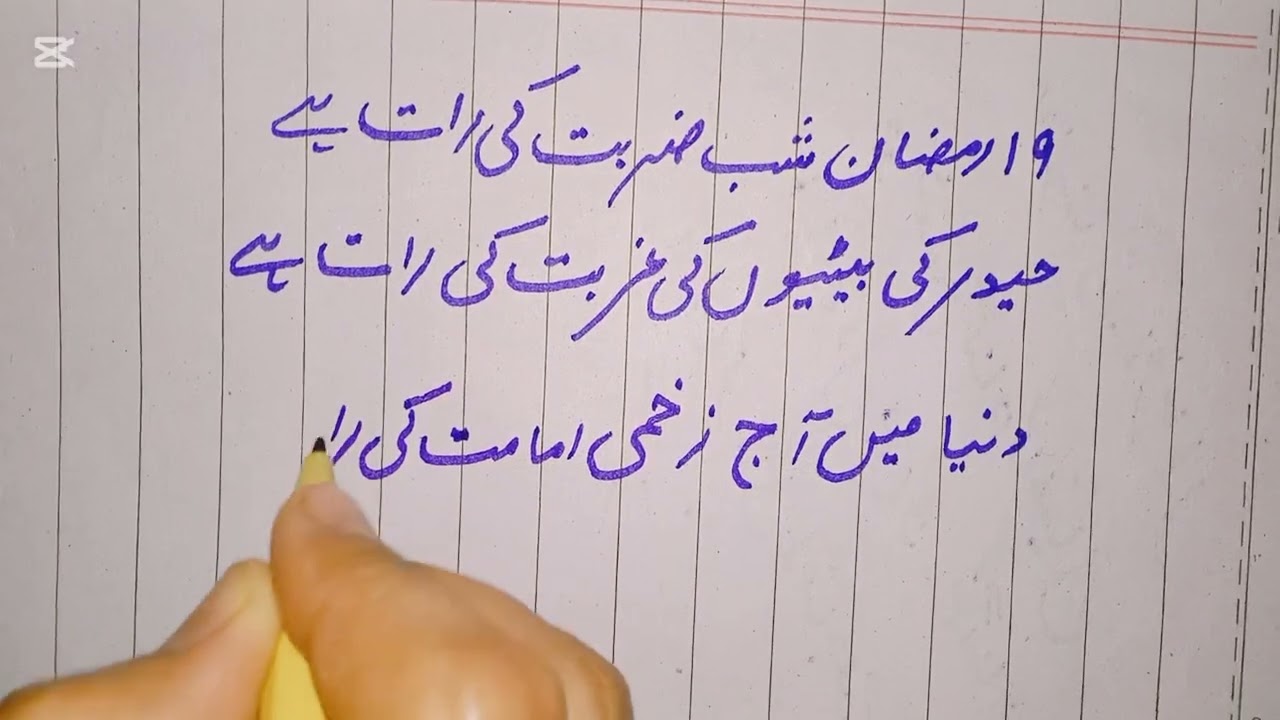 ۱۹ رمضان شب ضربت کی رات ہے
حیدر کی بیٹیوں کی غربت کی رات ہے
دنیا میں آج زخمی امامت کی را